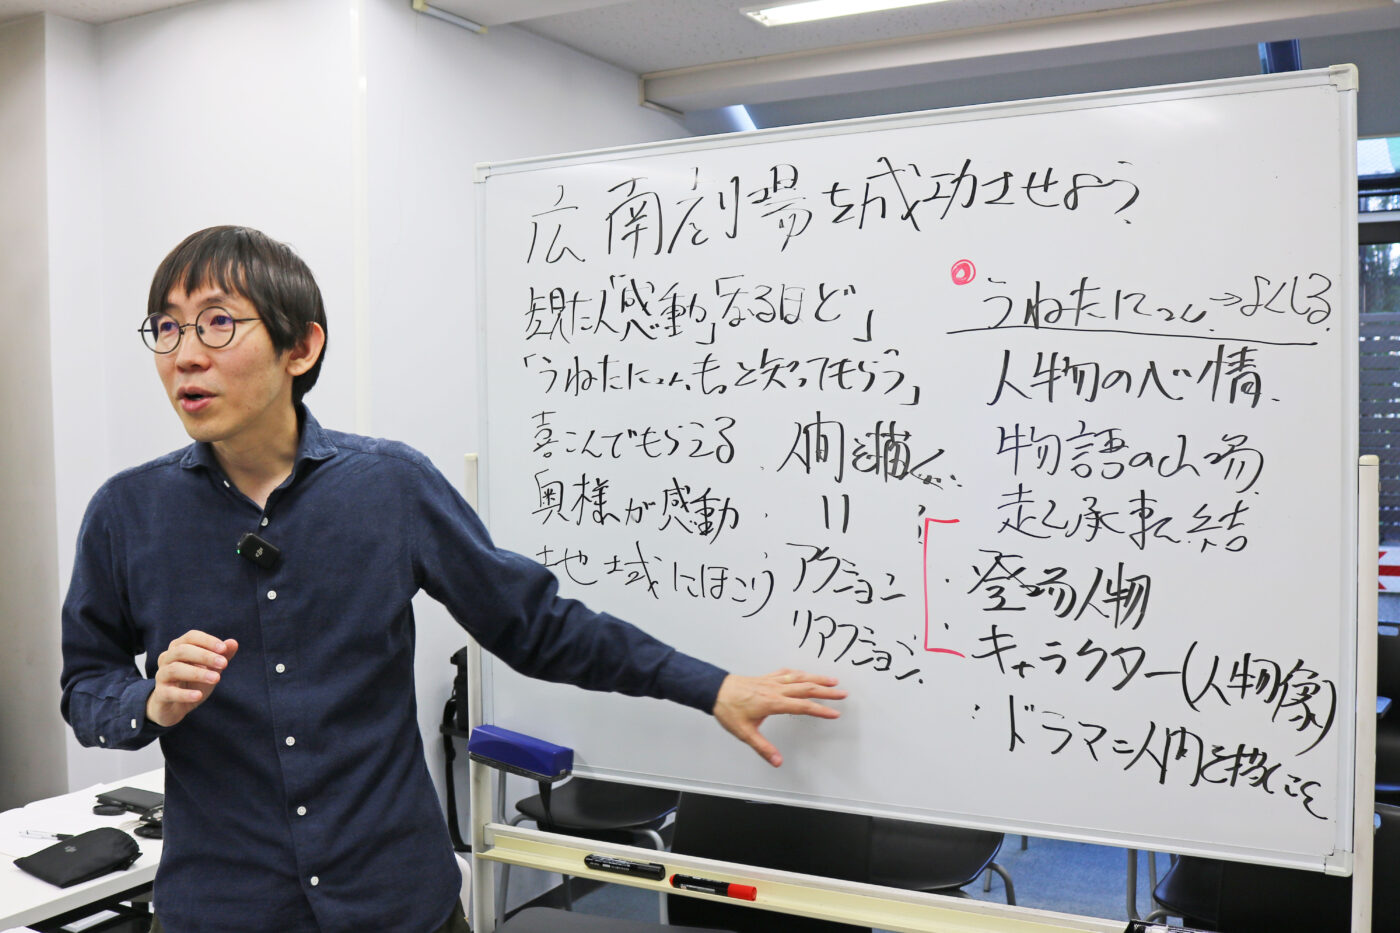 広南劇場を成功させよう
観た人「感動」「なるほど」
「うねたにっん、もっと知ってもらう」
喜こんでもらえる
奥様が感動
地域にほこり
人間を描く
=
アクション
リアクション
うねたにっん→よくしる
人物の心情
物語の山場
起承転結
・登場人物
・キャラクター(人物像)
・ドラマ=人間を描くこと